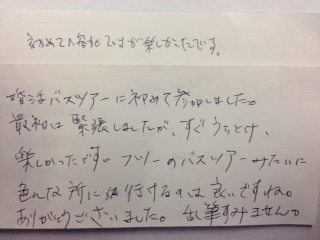 初めての参加ですが楽しかったです。
婚活バスツアーに初めて参加しました。
最初は緊張しましたが、すぐうちとけ、
楽しかったです。フリーのバスツアーみたいに
色んな所に行けるのは良いですね。
ありがとうございました。乱筆すみません。